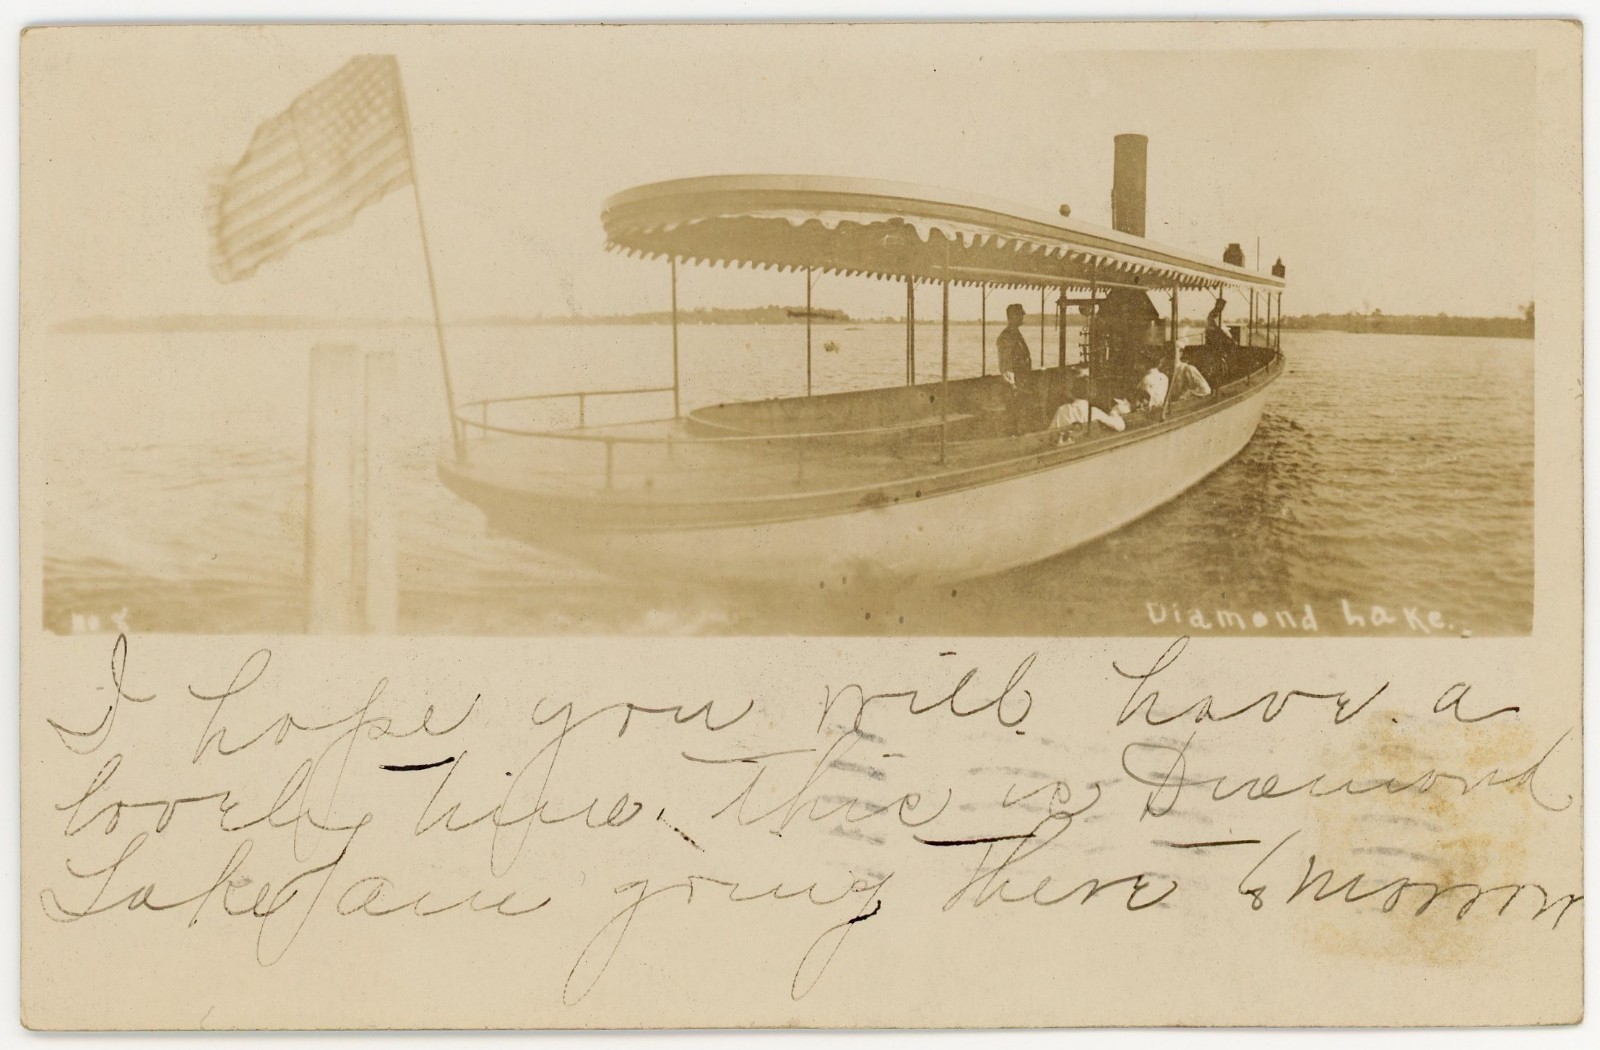 No
Diamond Lake.
I hope you will have a
lovely time. this is Diamond
Lake am going there tomorrow